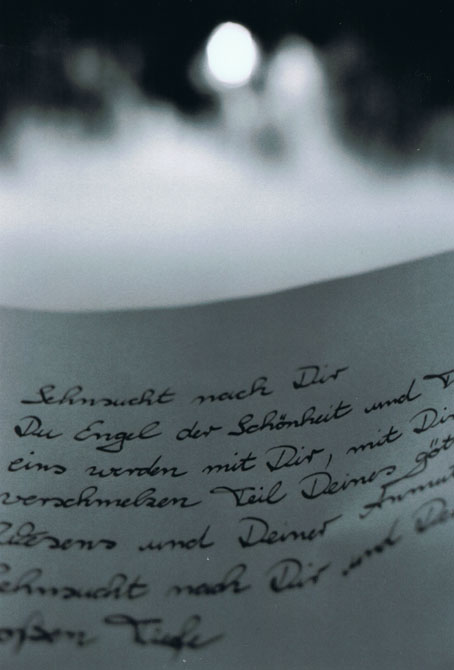 Sehnsucht nach Dir
Du Engel der Schönheit und T
eins werden mit Dir, mit Dir
verschmelzen Teil Deines göt
Wesens und Deiner Anmut
Sehnsucht nach Dir und De
oßen Tiefe